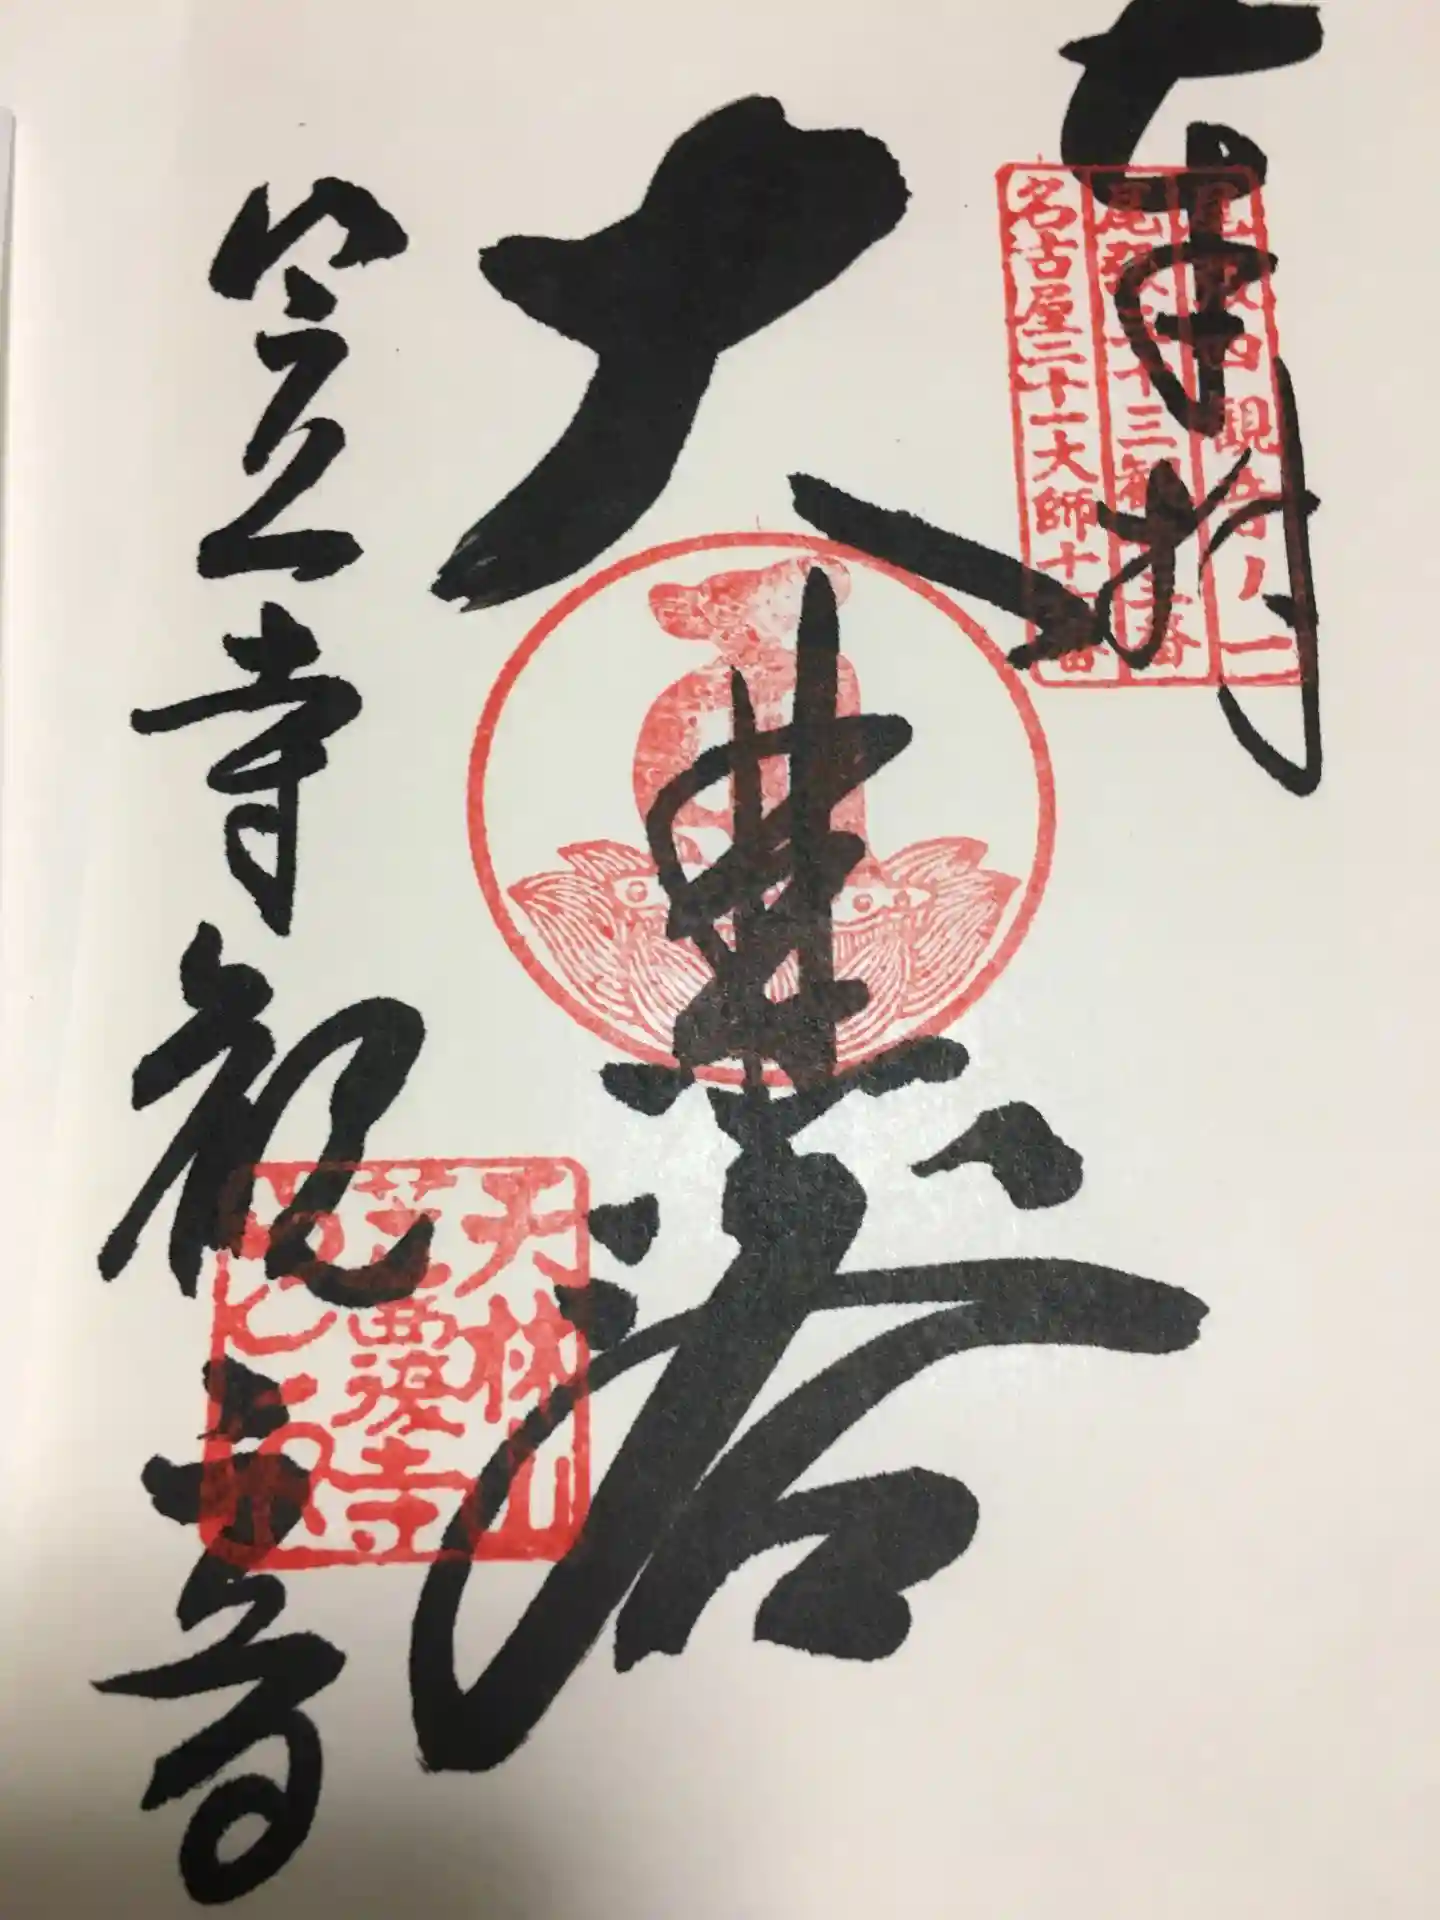 奉拝
尾張四観音ノ一
尾張三十三観音三番
名古屋二十一大師十番
大悲
笠寺観音
天林山
笠覆寺